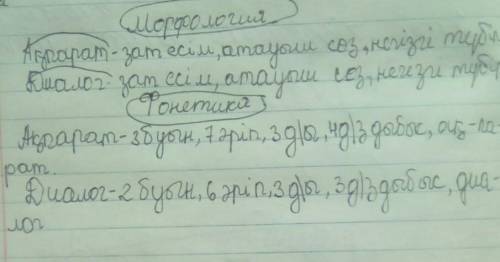 Морфология
Ақпарат-зат есім, атауыш сөз, негізгі түбір
Диалог-зат есім, атауыш сөз, негізгі түбір
Фонетика
Ақпарат-3 буын, 7 әріп, 3 д/ы, 4 д/з дыбыс, ақ-па-
рат.
Диалог-2 буын, 6 әріп, 3 д/ы, 3 д/з дыбыс, диа-
лог